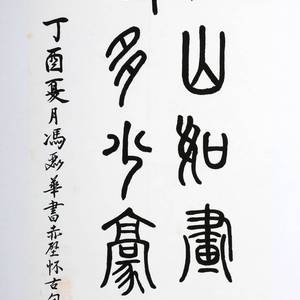 山如畫
多少豪
丁酉夏月馮華書赤壁怀古句